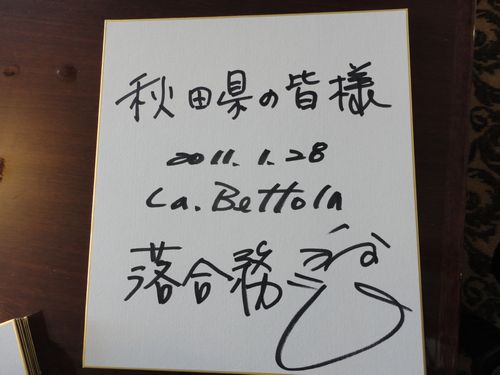 秋田県の皆様
2011.1.28
La.Bettola
落合務